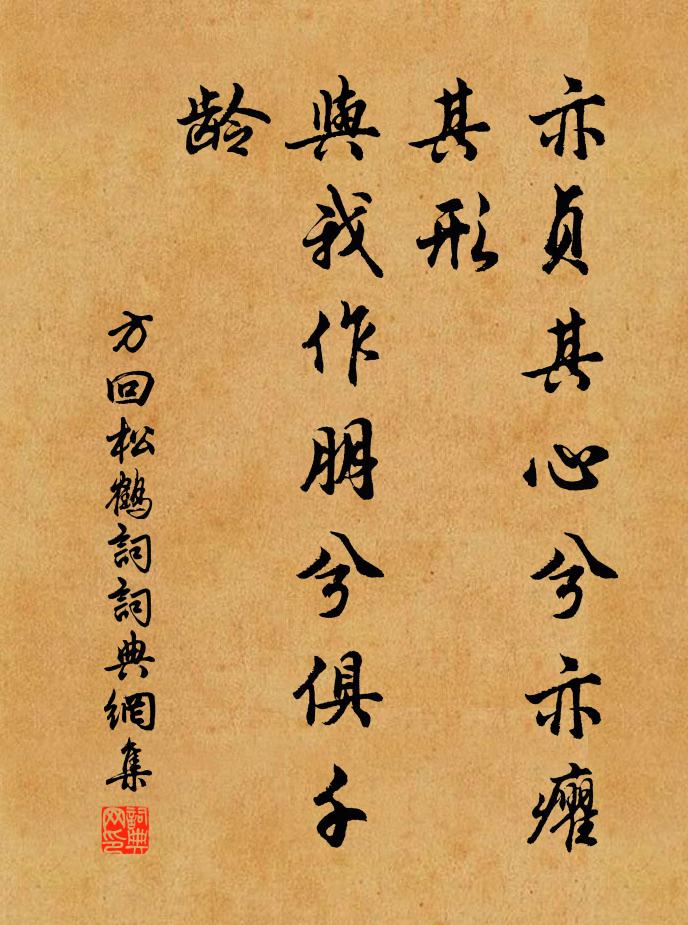 亦貞其心兮亦癯
其形
與我作朋兮俱千
龄
方回松鶴詞詞典網集
詞典网印